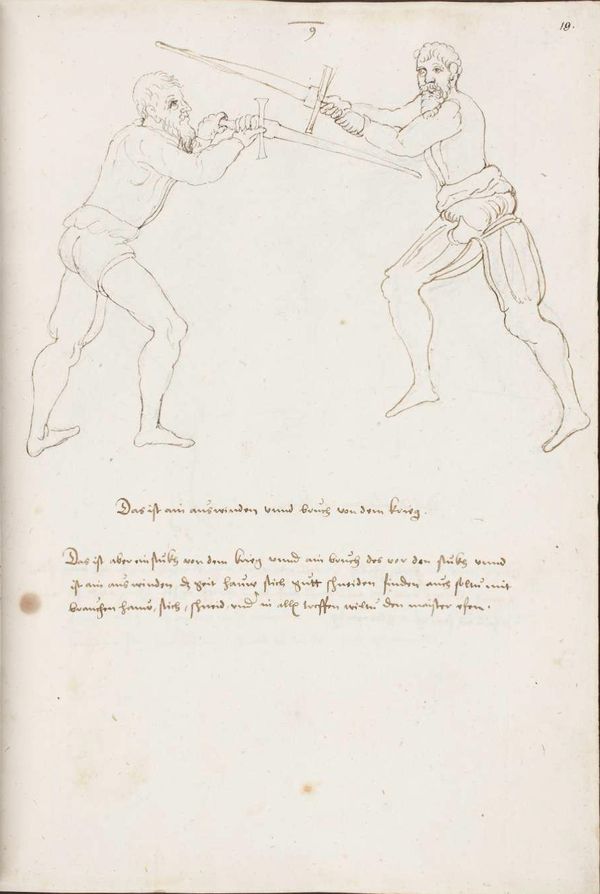 9
19.
Das ist ain auswinden vnnd bruch von dem krieg.
Das ist aber ein stukh von dem krieg vnnd ain bruch des vor den stukh vnnd
ist ain auswinden dz geit hauw stich gutt schneiden finden auch soltu mit
brauchen hauw, stich, schneid, vnd in allen treffen wiltu den maister efen.